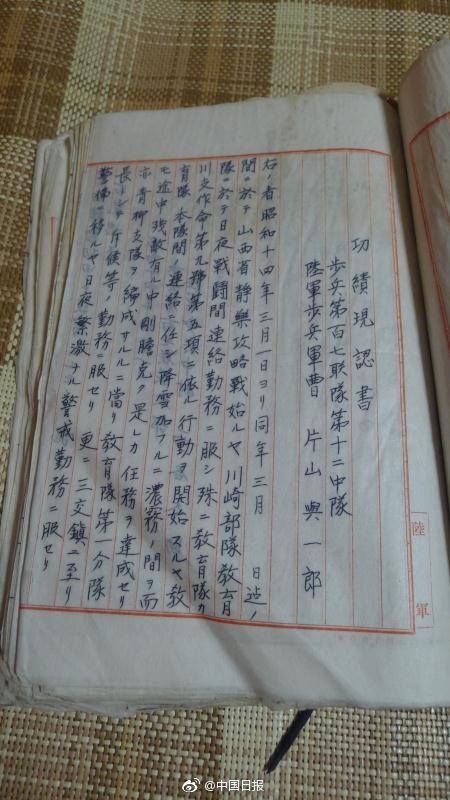 功績現認書
歩兵第百七联隊第十二中隊
陸軍歩兵軍曹 片山與一郎
右ノ者昭和十四年三月一日ヨリ同年三月 日迠ノ
間ニ於テ山西省靜樂攻略戦始ルヤ川崎部隊教育
隊ニ於テ日夜戦闘間連絡勤務ニ服シ殊ニ教育隊カ
川支作命第九號第五項ニ依ル行動ヲ開始スルヤ教
育隊本隊間ノ連絡ニ任シ降雪加フルニ濃霧ノ間ヲ而
モ途中残敵有ル中剛膽克ク是レカ任務ヲ達成セリ
亦青柳支隊ヲ編成サルルニ當リ教育隊第一分隊
長トシテ斥候等ノ勤務ニ服セリ 更ニ三交鎮ニ至リ
警備ニ移ルヤ日夜繁激ナル警戒勤務ニ服セリ
陸軍
@中国日报